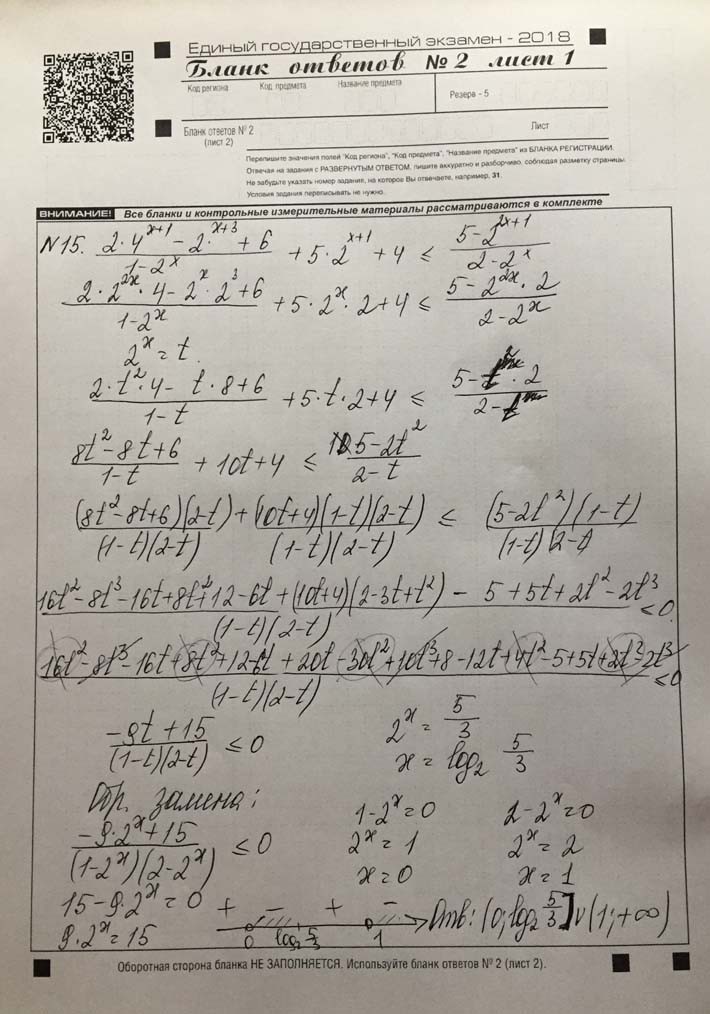 Единый государственный экзамен - 2018
Бланк ответов № 2 лист 1
Код региона Код предмета Название предмета
Резерв - 5
Бланк ответов № 2
(лист 2)
Лист
Перепишите значения полей "Код региона", "Код предмета", "Название предмета" из БЛАНКА РЕГИСТРАЦИИ.
Отвечая на задания с РАЗВЕРНУТЫМ ОТВЕТОМ, пишите аккуратно и разборчиво, соблюдая разметку страницы.
Не забудьте указать номер задания, на которое Вы отвечаете, например, 31.
Условия задания переписывать не нужно.
ВНИМАНИЕ! Все бланки и контрольные измерительные материалы рассматриваются в комплекте
№15. (2·4^(x+1) - 2^(x+3) + 6)/(1-2^x) + 5·2^(x+1) + 4 ≤ (5-2^(2x+1))/(2-2^x)
(2·2^(2x)·4 - 2^x·2^3 + 6)/(1-2^x) + 5·2^x·2 + 4 ≤ (5-2^(2x)·2)/(2-2^x)
2^x = t.
(2·t^2·4 - t·8 + 6)/(1-t) + 5·t·2 + 4 ≤ (5-t^2·2)/(2-t)
(8t^2-8t+6)/(1-t) + 10t+4 ≤ (5-2t^2)/(2-t)
(8t^2-8t+6)(2-t)/((1-t)(2-t)) + (10t+4)(1-t)(2-t)/((1-t)(2-t)) ≤ (5-2t^2)(1-t)/((1-t)(2-t))
(16t^2-8t^3-16t+8t^2+12-6t+(10t+4)(2-3t+t^2) - 5+5t+2t^2-2t^3)/((1-t)(2-t)) ≤0
(16t^2-8t^3-16t+8t^2+12-6t+20t-30t^2+10t^3+8-12t+4t^2-5+5t+2t^2-2t^3)/((1-t)(2-t)) ≤0
(-9t+15)/((1-t)(2-t)) ≤ 0
2^x = 5/3
x = log₂ 5/3
Обр. замена:
(-9·2^x+15)/((1-2^x)(2-2^x)) ≤ 0
1-2^x=0
2^x = 1
x = 0
2-2^x=0
2^x = 2
x = 1
15-9·2^x = 0
9·2^x = 15
+ - + -
0 log₂ 5/3 1
Отв: (0; log₂ 5/3] ∪ (1; +∞)
Оборотная сторона бланка НЕ ЗАПОЛНЯЕТСЯ. Используйте бланк ответов № 2 (лист 2).